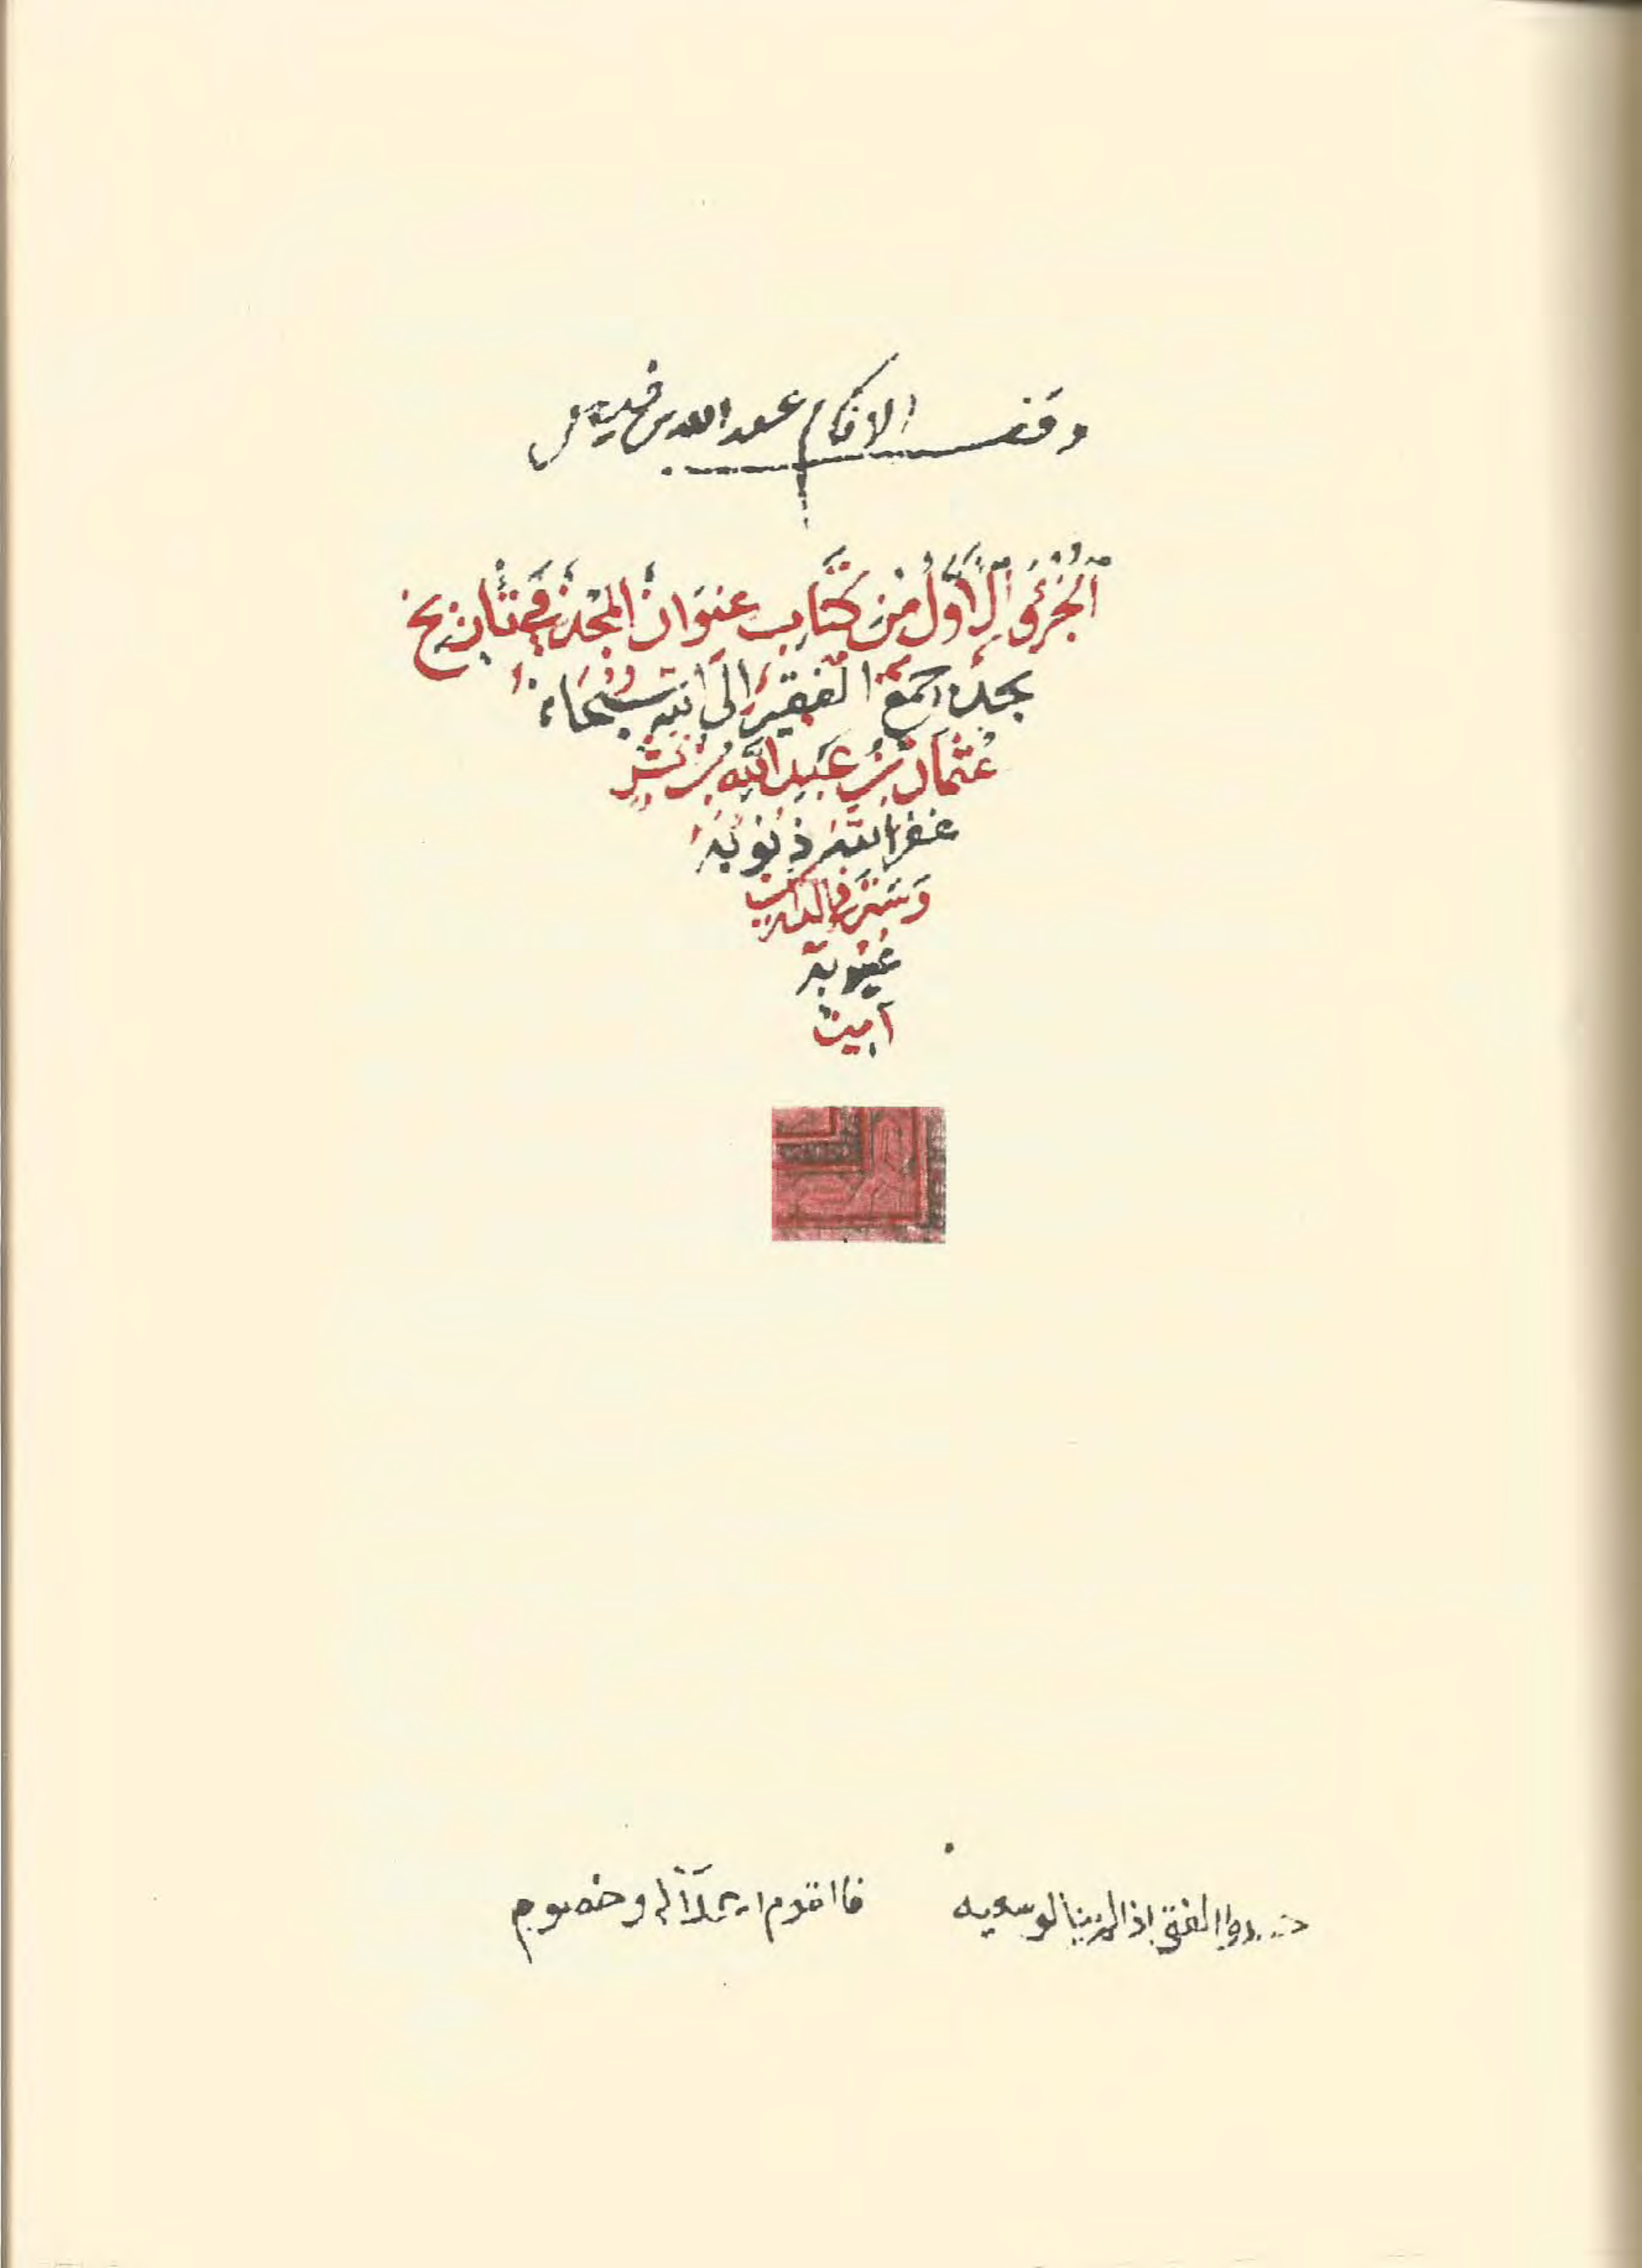 وقف الامام عبد الله بن فيصل
الجُزْءُ الأَوَّلُ مِنْ كِتَابِ عِنْوَانِ المَجْدِ فِي تَارِيخِ
نجد جمع الفقير الى الله سبحانه
عُثْمَانَ بْنِ عَبْدِ اللهِ بْنِ بِشْرٍ
غفر الله ذنوبه
وَسَتَرَ في الدارين
عيوبه
آمين
حسدوا الفتى اذ لم ينالوا سعيه فاالقوم اعدآ له وخصوم